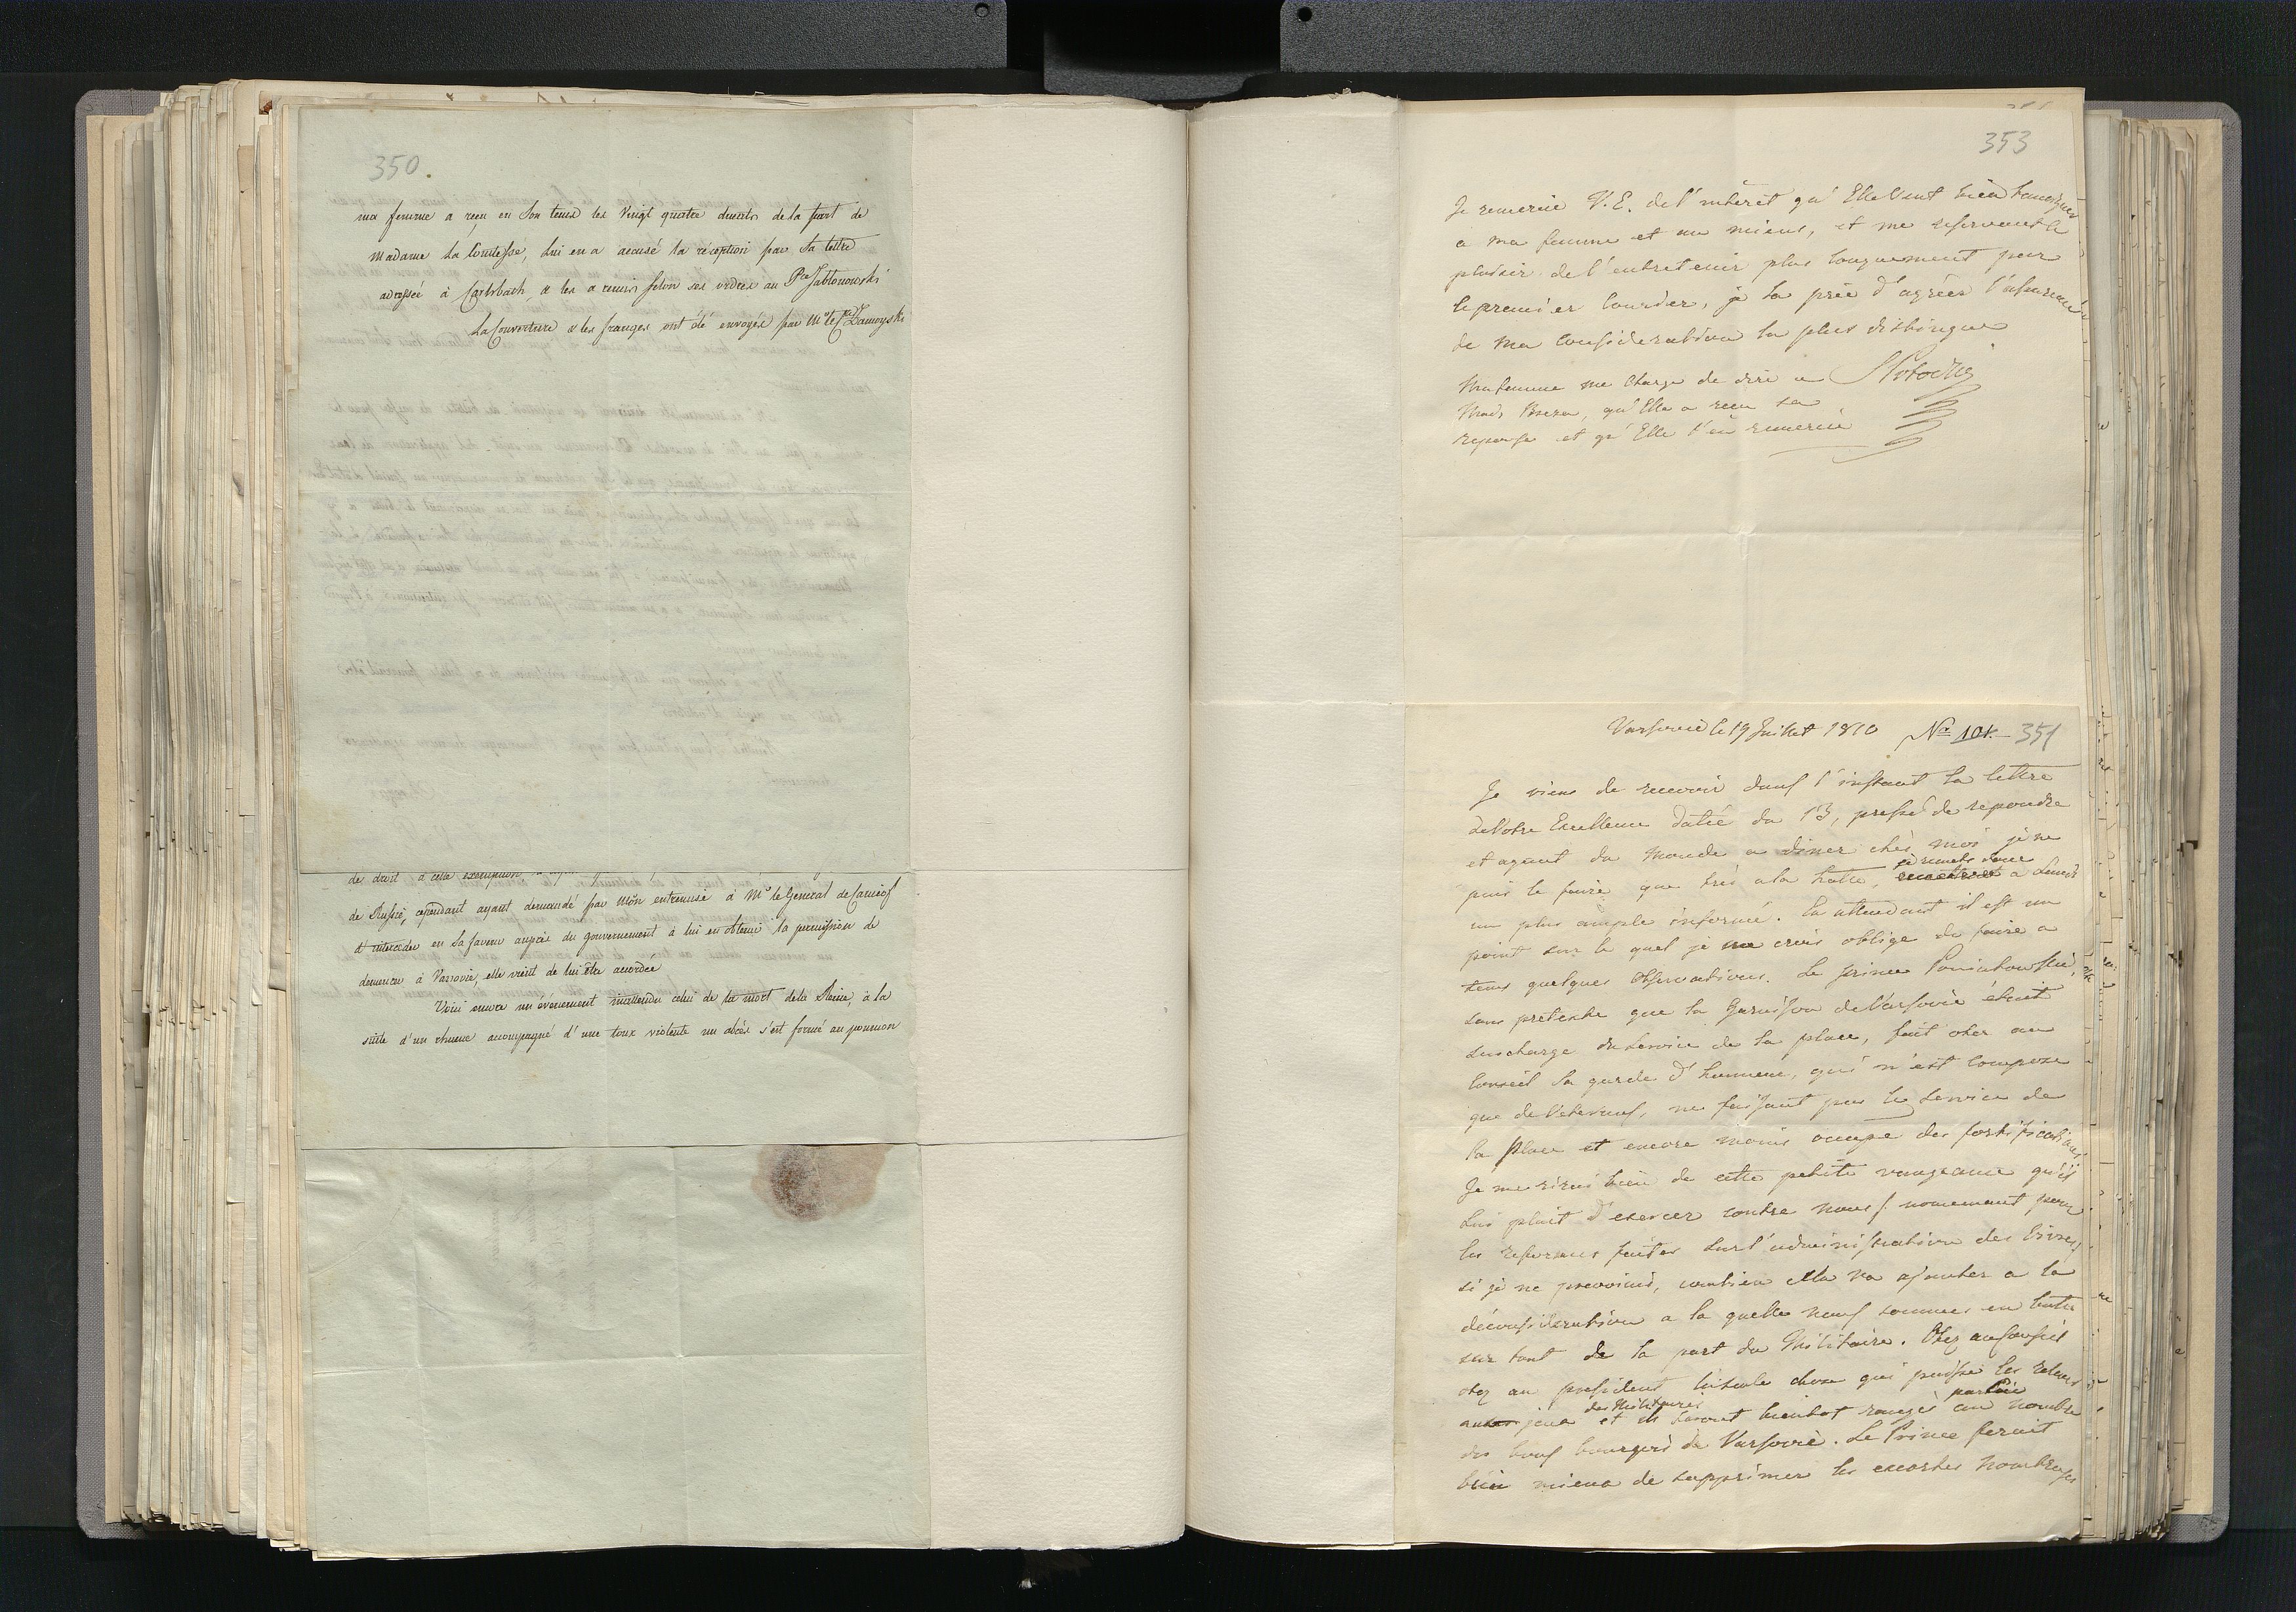 350.
ma femme a reçu en Son tems les Vingt quatre ducats de la part de
Madame La Comtesse, Lui en a accusé la réception par Sa lettre
adressée à Carlsbad, & les a remis selon ses ordres au Pce Jablonowski
La Couverture & les franges ont été envoyés par Mr le Cte Zamoyski
de droit à cette
de Russie, cependant ayant demandé par Mon entremise à Mr le General de
d'interceder en Sa faveur auprès du gouvernement à lui en obtenir la permission de
demeurer à Varsovie, elle vient de lui être accordée
Voici encore un évènement inattendu celui de la mort de la Reine, à la
suite d'un rhume accompagné d'une toux violente un abcès s'est formé au poumon
353
Je remercie V. E. de l'intérêt qu'Elle Veut bien temoigner
a ma femme et au miens, et me reservant le
plaisir de l'entretenir plus longuement par
le premier Courier, je la prie d'agréer l'assurance
de ma consideration la plus distingue
Ma femme me charge de dire a SPotocki
Made Breza, qu'Elle a reçu sa
reponse et qu'Elle l'en remercie
Varsovie le 19 Juillet 1810 No 101. 351
Je viens de recevoir dans l'instant la lettre
de Votre Excellence datée du 13, pressé de repondre
et ayant du monde a diner chès moi je ne
puis le faire que très a la hatte, je remets donc a Lundi
un plus ample informé. En attendant il est un
point sur le quel je me crois obligé de faire a
tems quelques observations. Le prince Poniatowski,
sous pretexte que la Garnison de Varsovie étoit
surcharge du Service de la place, fait oter au
Conseil sa garde d'honneur, qui n'est composee
que de Veterans, ne faisant pas le Service de
la place et encore moins occupé des fortifications
Je me rirois bien de cette petite vangeance qu'il
Lui plait d'exercer contre nous nomement pour
les reformes faites sur l'administration des vivres
si je ne prevoiois, combien Elle va ajouter a la
déconsideration a la quelle nous sommes en butte
sur tout de la part du Militaire. Otez au Conseil
otez au president toute chose qui puisse les relever
aux yeux des Militaires et ils seront bientot rangés par lui au nombre
des bons bourgeois de Varsovie. Le Prince feroit
bien mieux de supprimer les escortes nombreuses